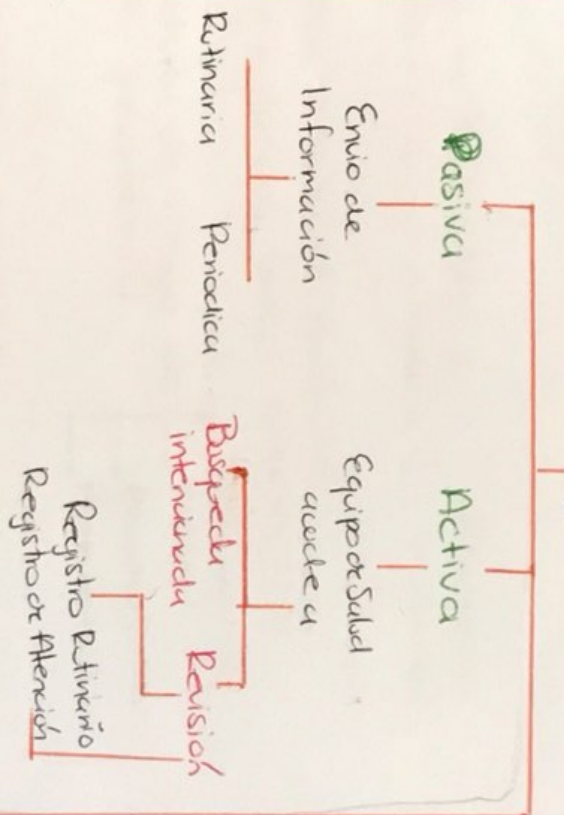 Pasiva
Envio de
Información
Rutinaria
Periodica
Activa
Equipo de Salud
acude a
Busqueda
intencionada
Revisión
Registro Rutinario
Registro de Atención